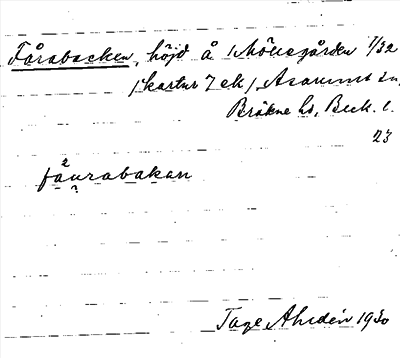 Fårabacken, höjd å Möllegården 7/32
/kartur 7 ek/, Asarums sn,
Bräkne hd, Blek. l.
23
fåu̯rabakan
2
Tage Ahldén 1930